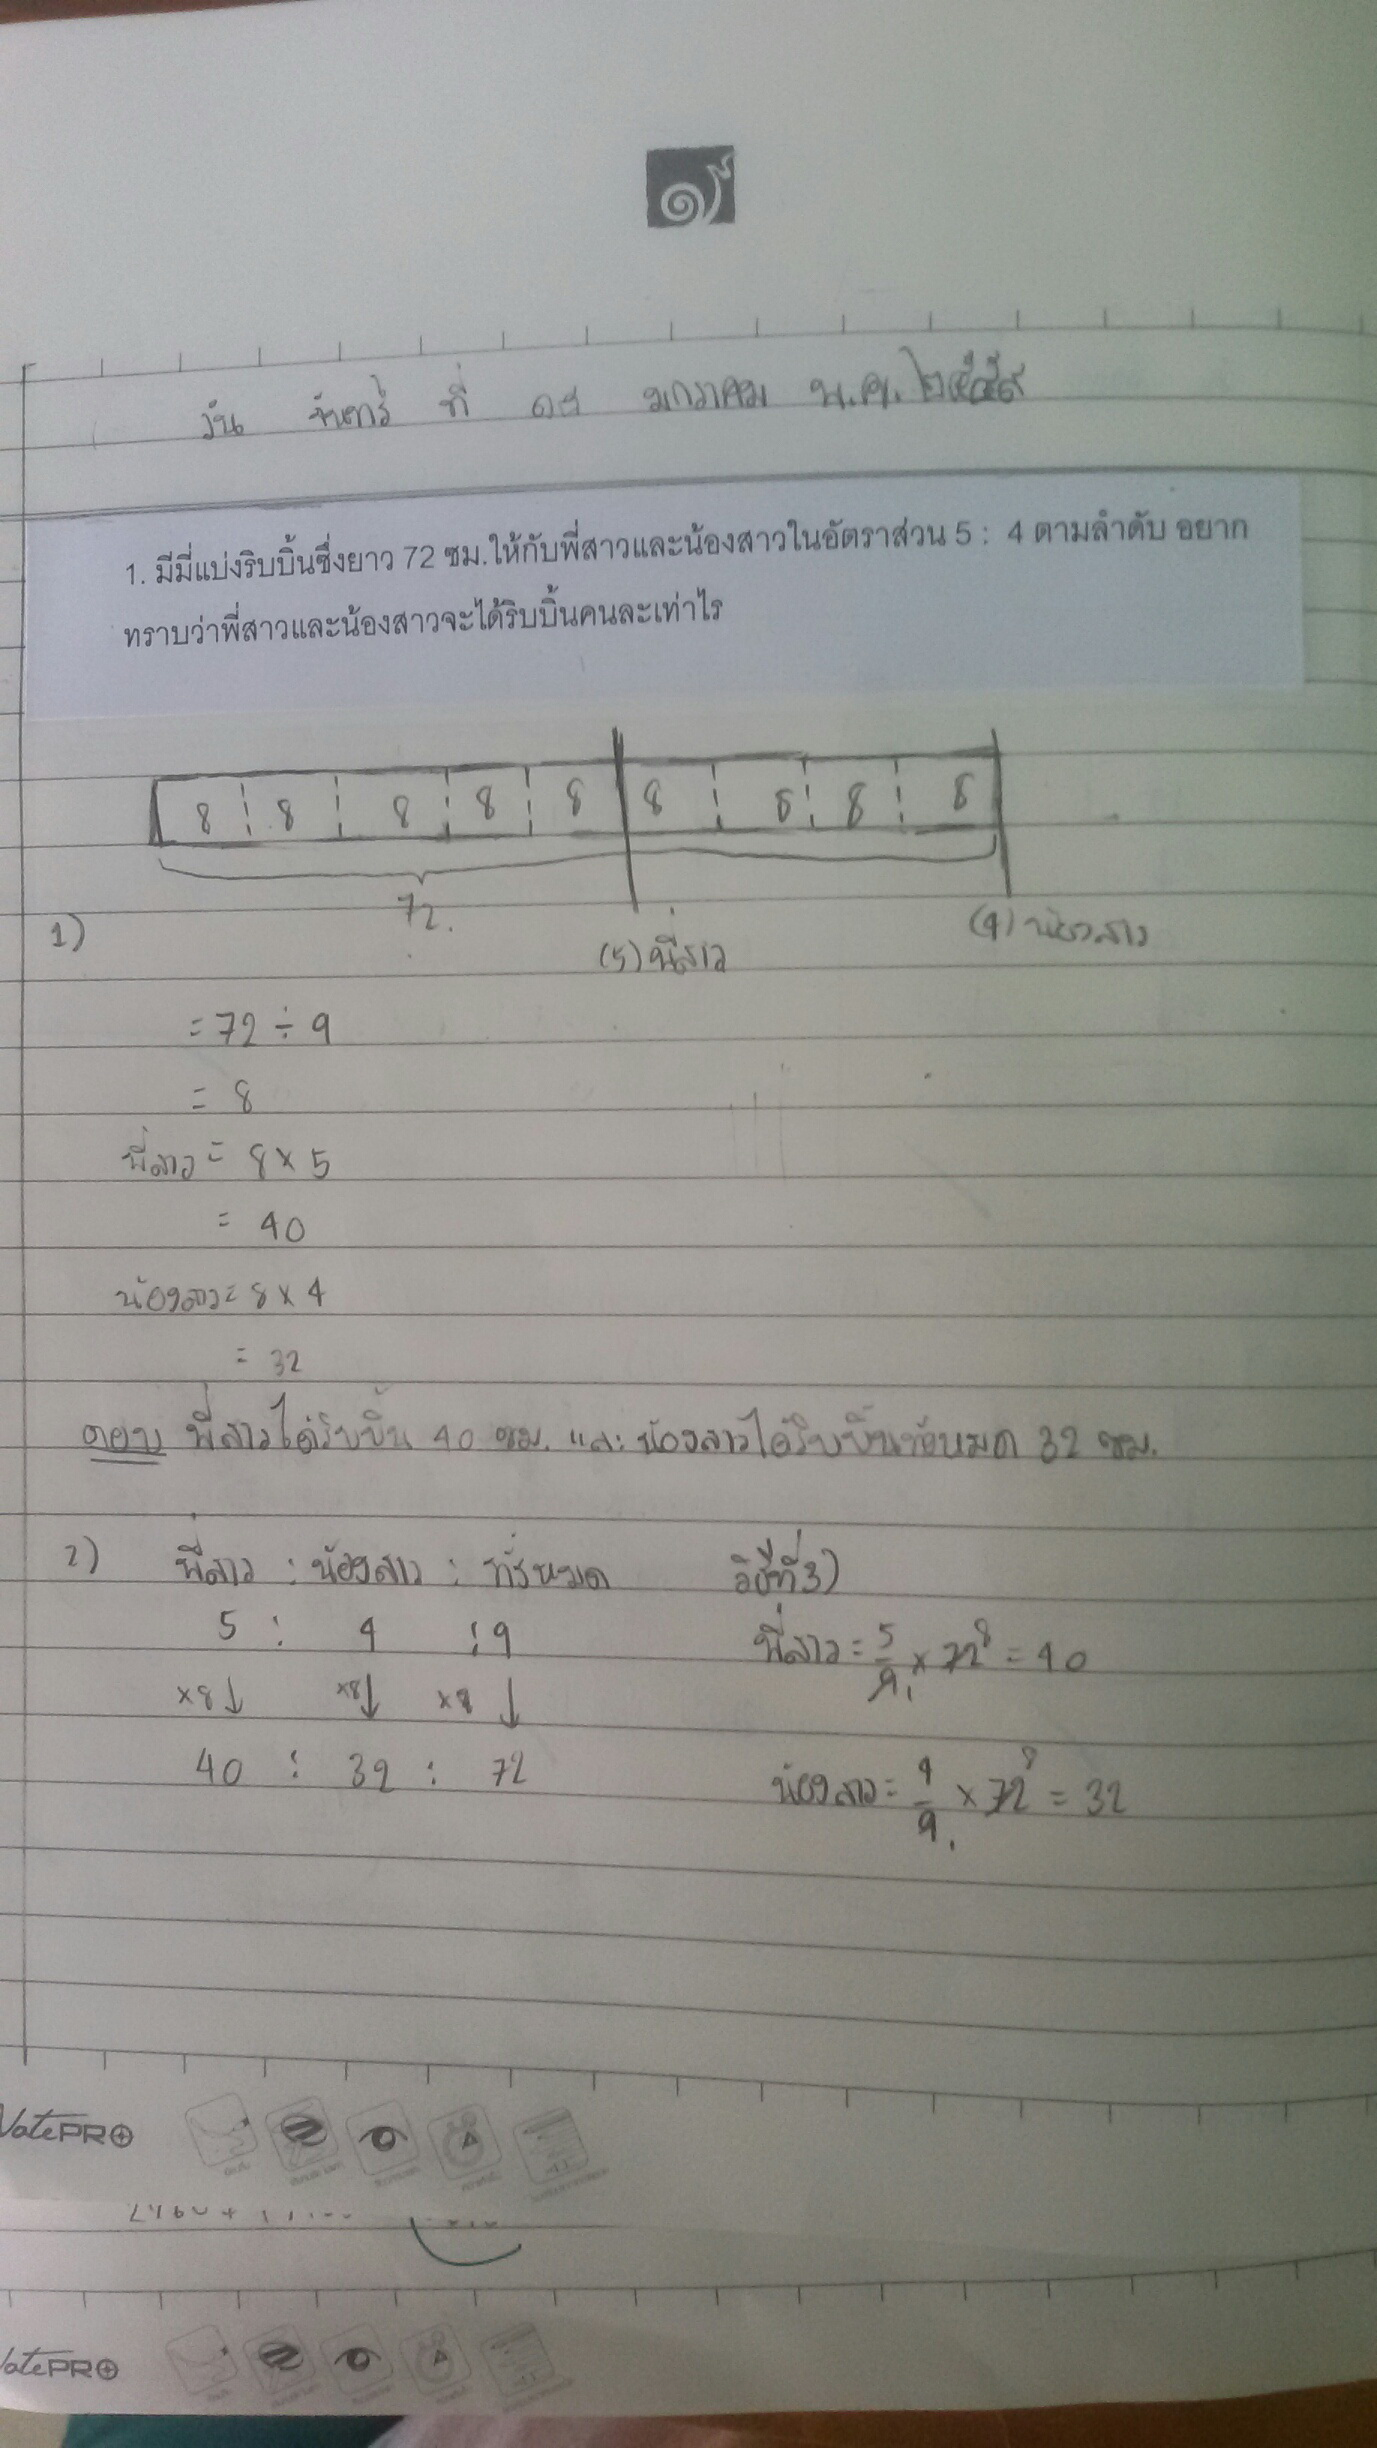 วัน จันทร์ ที่ ๑๘ มกราคม พ.ศ. ๒๕๕๙
1. มีมี่แบ่งริบบิ้นซึ่งยาว 72 ซม.ให้กับพี่สาวและน้องสาวในอัตราส่วน 5 : 4 ตามลำดับ อยาก
ทราบว่าพี่สาวและน้องสาวจะได้ริบบิ้นคนละเท่าไร
8 8 8 8 8 8 8 8 8
72.
1)
(5) พี่สาว (4) น้องสาว
= 72 ÷ 9
= 8
พี่สาว = 8 × 5
= 40
น้องสาว = 8 × 4
= 32
ตอบ พี่สาวได้ริบบิ้น 40 ซม. และ น้องสาวได้ริบบิ้นทั้งหมด 32 ซม.
2) พี่สาว : น้องสาว : ทั้งหมด วิธีที่3)
5 : 4 : 9 พี่สาว = 5/9 1 × 72 8 = 40
×8↓ ×8↓ ×8↓
40 : 32 : 72 น้องสาว = 4/9 1 × 72 8 = 32
NotePRO
NotePRO